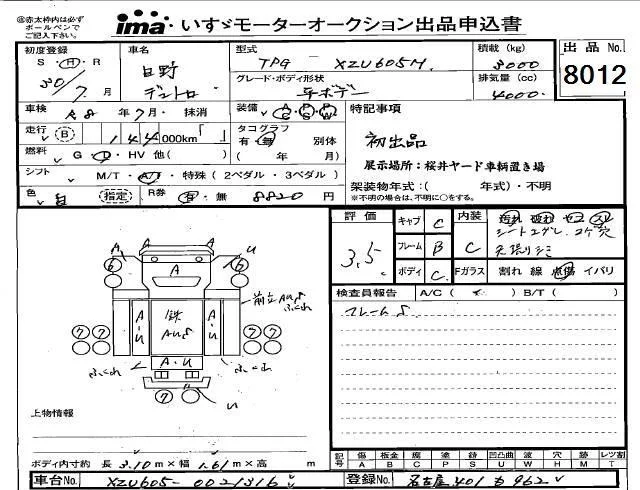 ㊟赤太枠内は必ず
ボールペンで
ご記入下さい。
ima いすゞモーターオークション出品申込書
初度登録 車名 型式 積載 (kg) 出品No.
S・H・R 日野 TPG - XZU605M 3000 8012
30/7月 デュトロ グレード・ボディ形状 排気量 (cc)
平ボデー 4000
車検 R8年7月・抹消 装備 AC PS PW 特記事項
走行 B 144,000km タコグラフ 初出品
有・無 別体
燃料 G・D・HV 他( ) ( 年 月) 展示場所:桜井ヤード車輌置き場
シフト M/T・A/T・特殊(2ペダル・3ペダル) 架装物年式:( 年式)・不明
色 白 指定 R券 有・無 8820円 ※不明の場合は、不明に○をする。
評価 キャブ C 内装
3.5 フレーム B C
ボディ C Fガラス 割れ 線 点傷 イバリ
検査員報告 A/C( ) B/T( )
フレームS
A U
6 A 6
前立AUS
ふくれ
A・U 鉄 A・U
AUS
7 7 7 7
ふくれ A・U ふくれ
7 U
上物情報
ボディ内寸約 長 3.10m×幅 1.61m×高 m
記号 傷 板金 瘢 塗 跡 凹凸曲 波 穴 跡 レツ割
A B C P S U W H M T
車台No. XZU605-0021316 登録No. 名古屋401 962